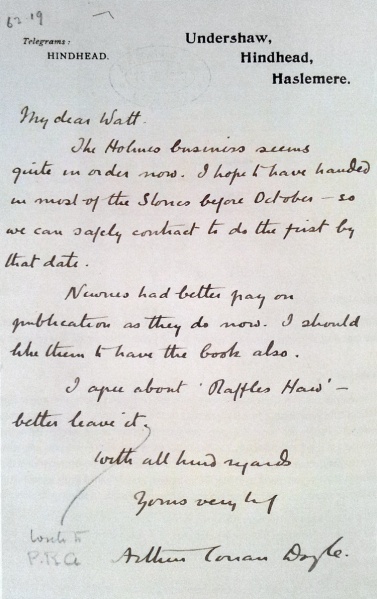 62.19
Telegrams:
HINDHEAD.
Undershaw,
Hindhead,
Haslemere.
My dear Watt.
The Holmes business seems
quite in order now. I hope to have handed
in most of the Stories before October – so
we can safely contract to do the first by
that date.
Newnes had better pay on
publication as they do now. I should
like them to have the book also.
I agree about 'Raffles Haw' –
better leave it.
With all kind regards
Yours very
Arthur Conan Doyle.